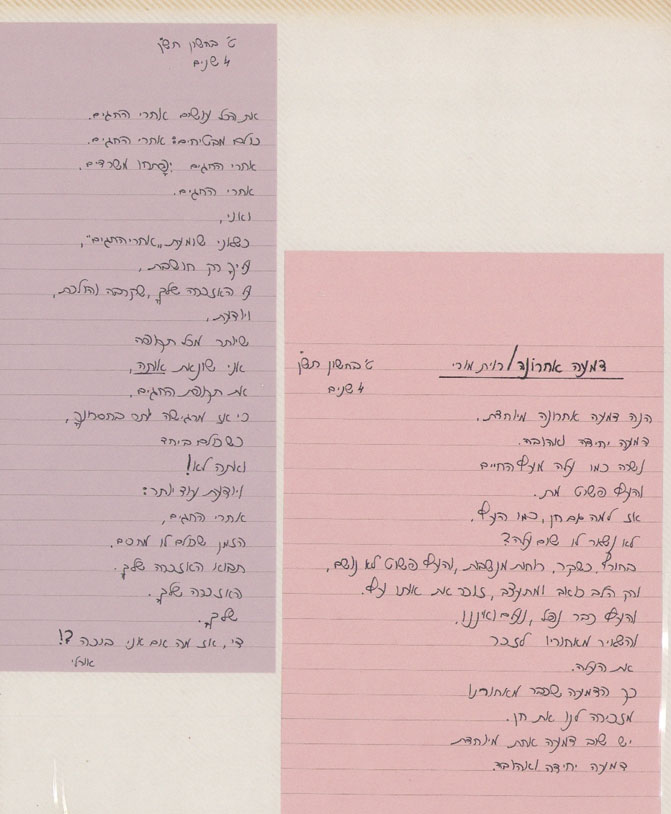 ט׳ בחשון תש״ן
4 שנים
את הכל עושים אחרי החגים.
כולם מבטיחים: אחרי החגים.
אחרי החגים יפתחו משרדים.
אחרי החגים.
ואני,
כשאני שומעת „אחרי החגים",
רק חושבת,
האזכרה שלך, שקרבה והולכת,
ויודעת,
שיותר מכל תקופה
אני שונאת אותה,
את תקופת החגים.
כי אז מרגישה יותר בחסרונך,
כשכולם ביחד
ואתה לא!
ויודעת עוד יותר:
אחרי החגים,
הזמן שכולם לו מחכים.
תבוא האזכרה שלך.
האזכרה שלך.
שלך.
די, אז מה אם אני בוכה?!
אורלי
דמעה אחרונה/רוית מורי
ט׳ בחשון תש״ן
4 שנים
הנה דמעה אחרונה מיוחדת.
דמעה יחידה ואהובה.
נשרה כמו עלה מעץ החיים
והעץ פשוט מת.
אז למה גם חן, כמו העץ.
לא נשאר לו שום עלה?
בחורף, כשקר, רוחות מנשבות, והעץ פשוט לא נושם,
רק הלב כואב ומתעצב, זוכר את אותו עץ.
והעץ כבר נפל, נעלם ואיננו,
והשאיר מאחוריו לזכר
את העלה.
כך הדמעה שכבר מאחורינו
מזכירה לנו את חן.
יש שוב דמעה אחת מיוחדת
דמעה יחידה ואהובה.